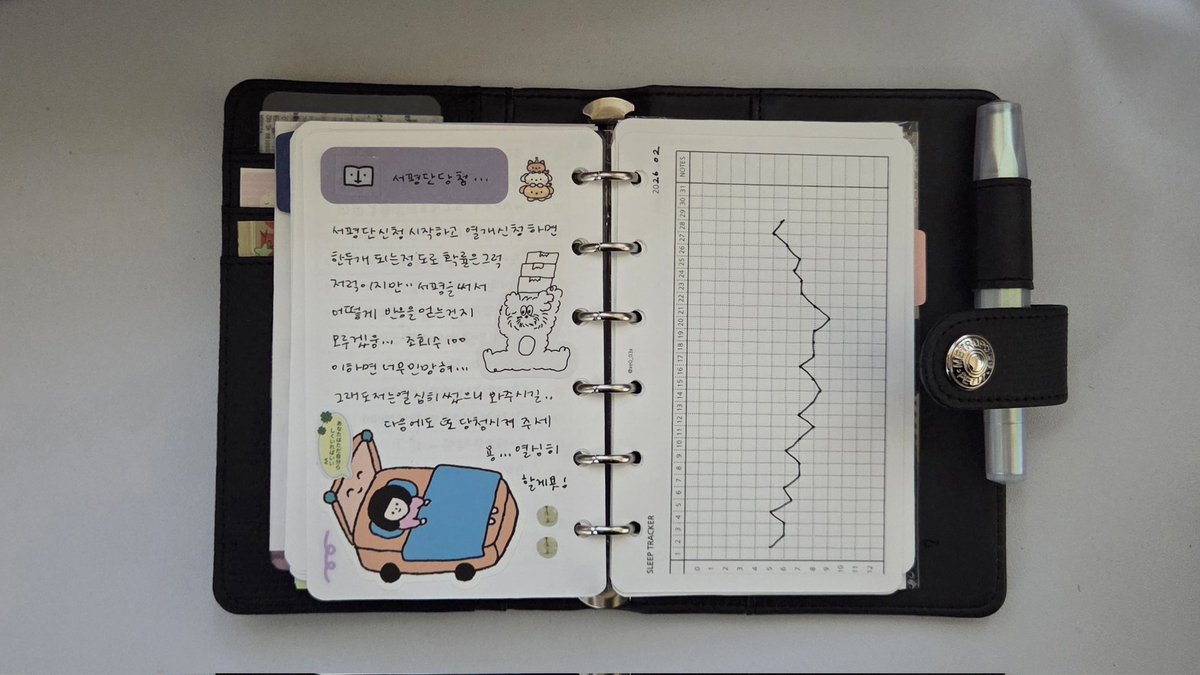 서평단당첨...
서평단신청 시작하고 열개신청하면
한두개 되는정도로 확률은그럭
저럭이지만.. 서평을써서
어떻게 반응을얻는건지
모루겠움... 조회수 100
이하면 너무민망혀...
그래도저는열심히썼으니 봐주시길..
다음에도 또 당첨시켜 주세
용... 열심히
할게용!
あなたはただ自分らしくいればいい
2026. 02
SLEEP TRACKER
1 2 3 4 5 6 7 8 9 10 11 12 13 14 15 16 17 18 19 20 21 22 23 24 25 26 27 28 29 30 31 NOTES
0 1 2 3 4 5 6 7 8 9 10 11 12